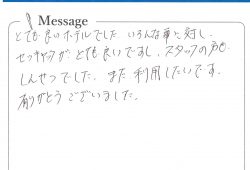 Message
とても良いホテルでした いろんな事に対し、
セッキャクが、とても良いですし、スタッフの方も
しんせつでした。また利用したいです。
ありがとうございました。